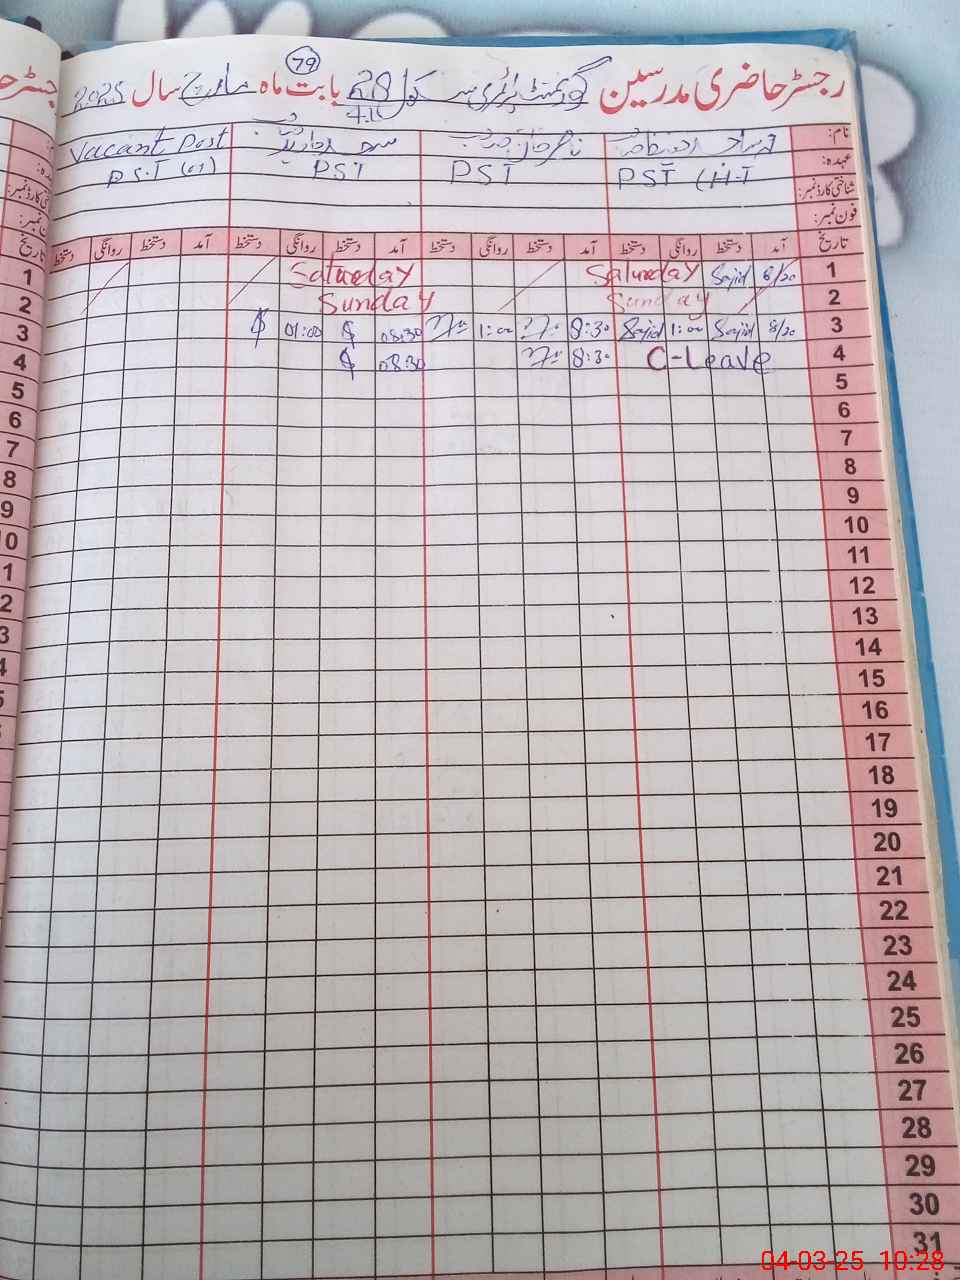 79
رجسٹر حاضری مدرسین گورنمنٹ پرائمری سکول 28 بابت ماہ مارچ سال 2025
4.L
نام:
Vacant Post
عہدہ: PST (H.T PST PST P.S.T (01)
شناختی کارڈ نمبر:
فون نمبر:
تاریخ آمد دستخط روانگی دستخط آمد دستخط روانگی دستخط آمد دستخط روانگی دستخط آمد دستخط روانگی دستخط
1 8/20 Sajid Saturday Saturday
2 Sunday Sunday
3 8/20 Sajid 1:00 Sajid 8:30 1:00 08:30 01:00
4 C-Leave 8:30 08:30
5
6
7
8
9
10
11
12
13
14
15
16
17
18
19
20
21
22
23
24
25
26
27
28
29
30
31
04-03-25 10:28